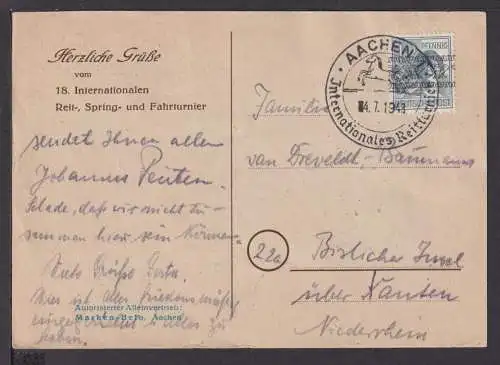 Herzliche Grüße
vom
18. Internationalen
Reit-, Spring- und Fahrturnier
sendet Ihnen allen
Johannes Penten.
Schade, daß wir nicht zu-
sammen hier sein können.
Viele Grüße
Hier ist alles friedensmäßig
Autorisierter Alleinvertrieb:
Marken-Beco, Aachen
zu
haben.
PFENNIG
AACHEN
4.7.1948
Internationales Reitturnier
Familie
van Dreveldt-Baumanns
22a
Bislicher Insel
über Xanten
Niederrhein